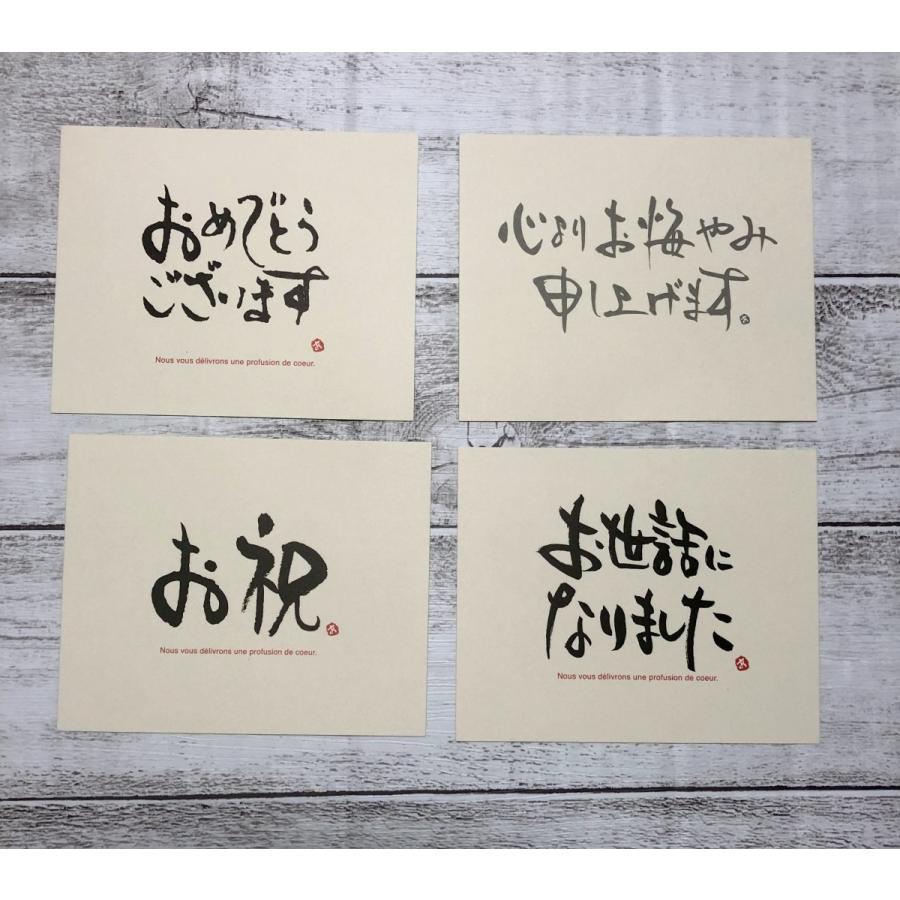 おめでとう
ございます
Nous vous délivrons une profusion de coeur.
心よりお悔やみ
申し上げます。
お祝
Nous vous délivrons une profusion de coeur.
お世話に
なりました
Nous vous délivrons une profusion de coeur.